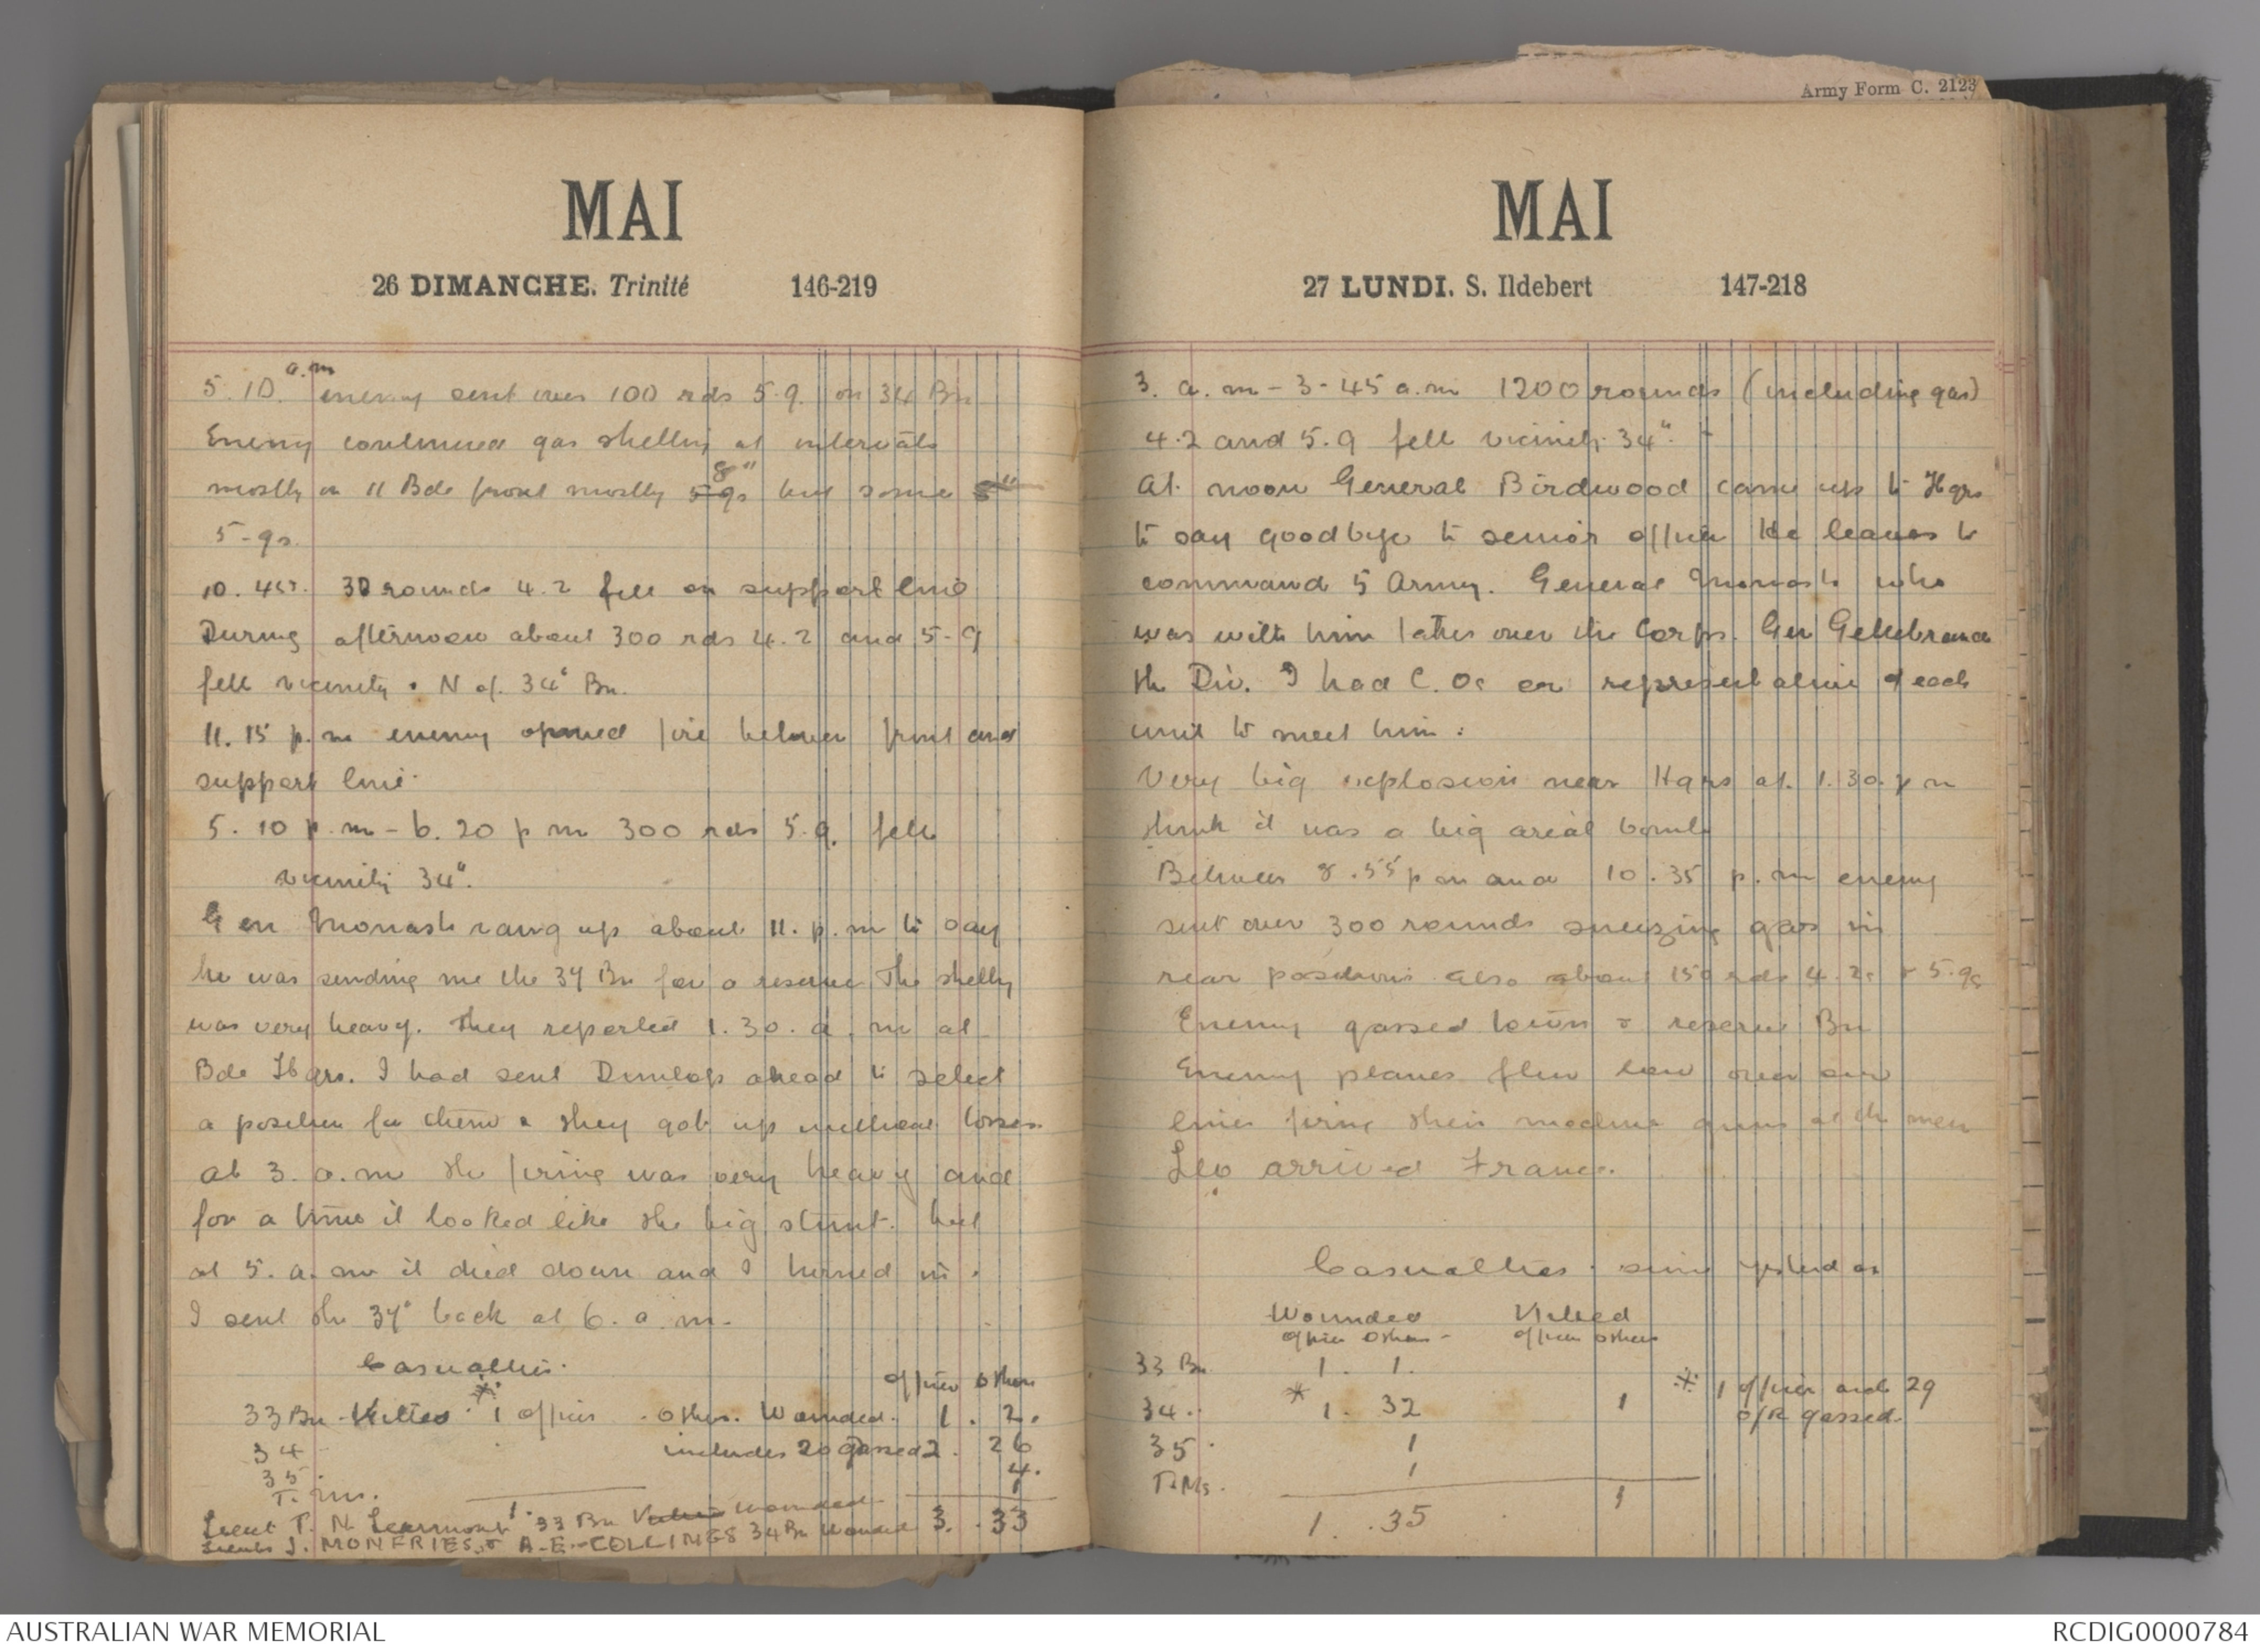 MAI
26 DIMANCHE. Trinité 146-219
5. 10. a.m enemy sent over 100 rds 5.9. on 34 Bn
Enemy continued gas shelling at intervals
mostly on 11 Bde front mostly 5.9s 8" but some 5"
5-9s.
10. 30 rounds 4.2 fell on support line
During afternoon about 300 rds 4.2 and 5-9
fell vicinity N of. 34" Bn.
11. 15 p.m enemy opened fire between front and
support line.
5. 10 p.m - 6. 20 p m 300 rds 5.9. fell
vicinity 34".
Gen Monash rang up about 11. p.m to say
he was sending me the 37 Bn for a reserve The shelling
was very heavy. They reported 1.30. a.m at
Bde Hqrs. I had sent Dunlop ahead to select
a position for them & they got up without losses.
At 3. a.m the firing was very heavy and
for a time it looked like the big stunt. but
at 5. a.m it died down and I turned in.
I sent the 37" back at 6. a.m.
Casualties.
officer others
33 Bn - Killed * 1 officer . others. Wounded. 1. 2.
34 includes 20 gassed 2. 26
35 4.
T. Ms. 1
1. 3. 33
Lieut P. N. Learmont 33 Bn Killed wounded
Lieuts J. MONFRIES & A-E-COLLINGS 34 Bn Wounded
Army Form C. 2123
MAI
27 LUNDI. S. Ildebert 147-218
3. a.m - 3-45 a.m 1200 rounds (including gas)
4.2 and 5.9 fell vicinity 34".
At noon General Birdwood came up to Hqrs
to say goodbye to senior officers He leaves to
command 5 Army. General Monash who
was with him takes over the Corps. Gen Gellibrand
the Div. I had C.Os or representative of each
unit to meet him:
Very big explosion near Hqrs at. 1.30. p m
think it was a big areal bomb
Between 8.55 p m and 10.35 p.m enemy
sent over 300 rounds sneezing gas in
rear positions also about 150 rds 4.2s & 5.9s
Enemy gassed town & reserve Bn
Enemy planes flew low over our
lines firing their machine guns at the men
Leo arrived France.
Casualties. since yesterday
Wounded Killed
officer others - officer others
33 Bn 1. 1.
34. * 1. 32 1 * 1 officer and 29
O/R gassed.
35. 1
T.Ms. 1
1. .35 1
AUSTRALIAN WAR MEMORIAL
RCDIG0000784